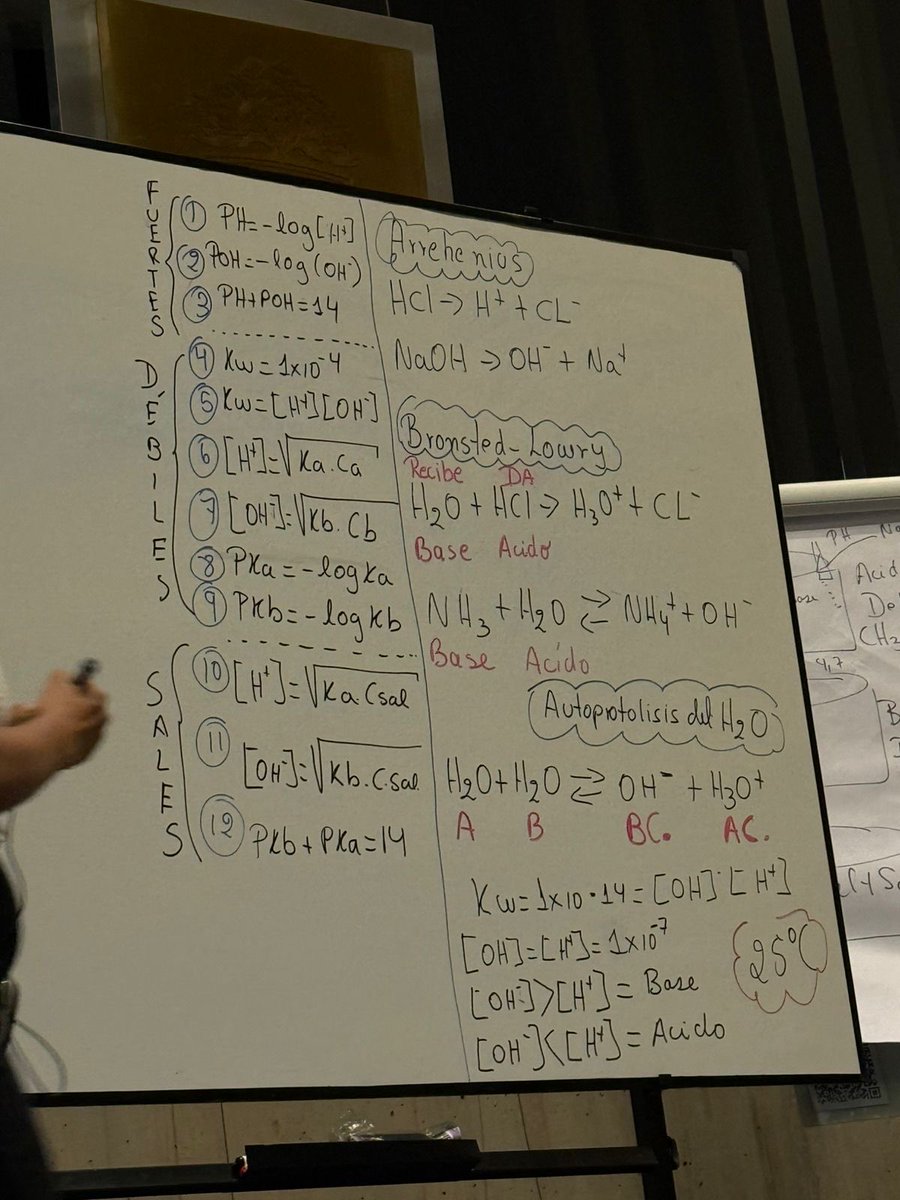 FUERTES
① PH=-log[H⁺]
② POH=-log(OH⁻)
③ PH+POH=14
DÉBILES
④ Kw=1x10⁻⁴
⑤ Kw=[H⁺][OH⁻]
⑥ [H⁺]=√Ka.Ca
⑦ [OH⁻]=√Kb.Cb
⑧ PKa=-logKa
⑨ PKb=-logKb
SALES
⑩ [H⁺]=√Ka.Csal
⑪ [OH⁻]=√Kb.C.sal
⑫ PKb+PKa=14
Arrehenius
HCl→H⁺+CL⁻
NaOH→OH⁻+Na⁺
Bronsted-Lowry
Recibe DA
H₂O+HCl→H₃O⁺+CL⁻
Base Acido
NH₃+H₂O⇄NH₄⁺+OH⁻
Base Acido
Autoprotolisis del H₂O
H₂O+H₂O⇄OH⁻+H₃O⁺
A B BC. AC.
Kw=1x10-14=[OH]·[H⁺]
[OH]=[H⁺]=1x10⁻⁷
[OH⁻]>[H⁺]=Base
[OH⁻]<[H⁺]=Acido
25°C
PH
Acid
CH₃
4,7